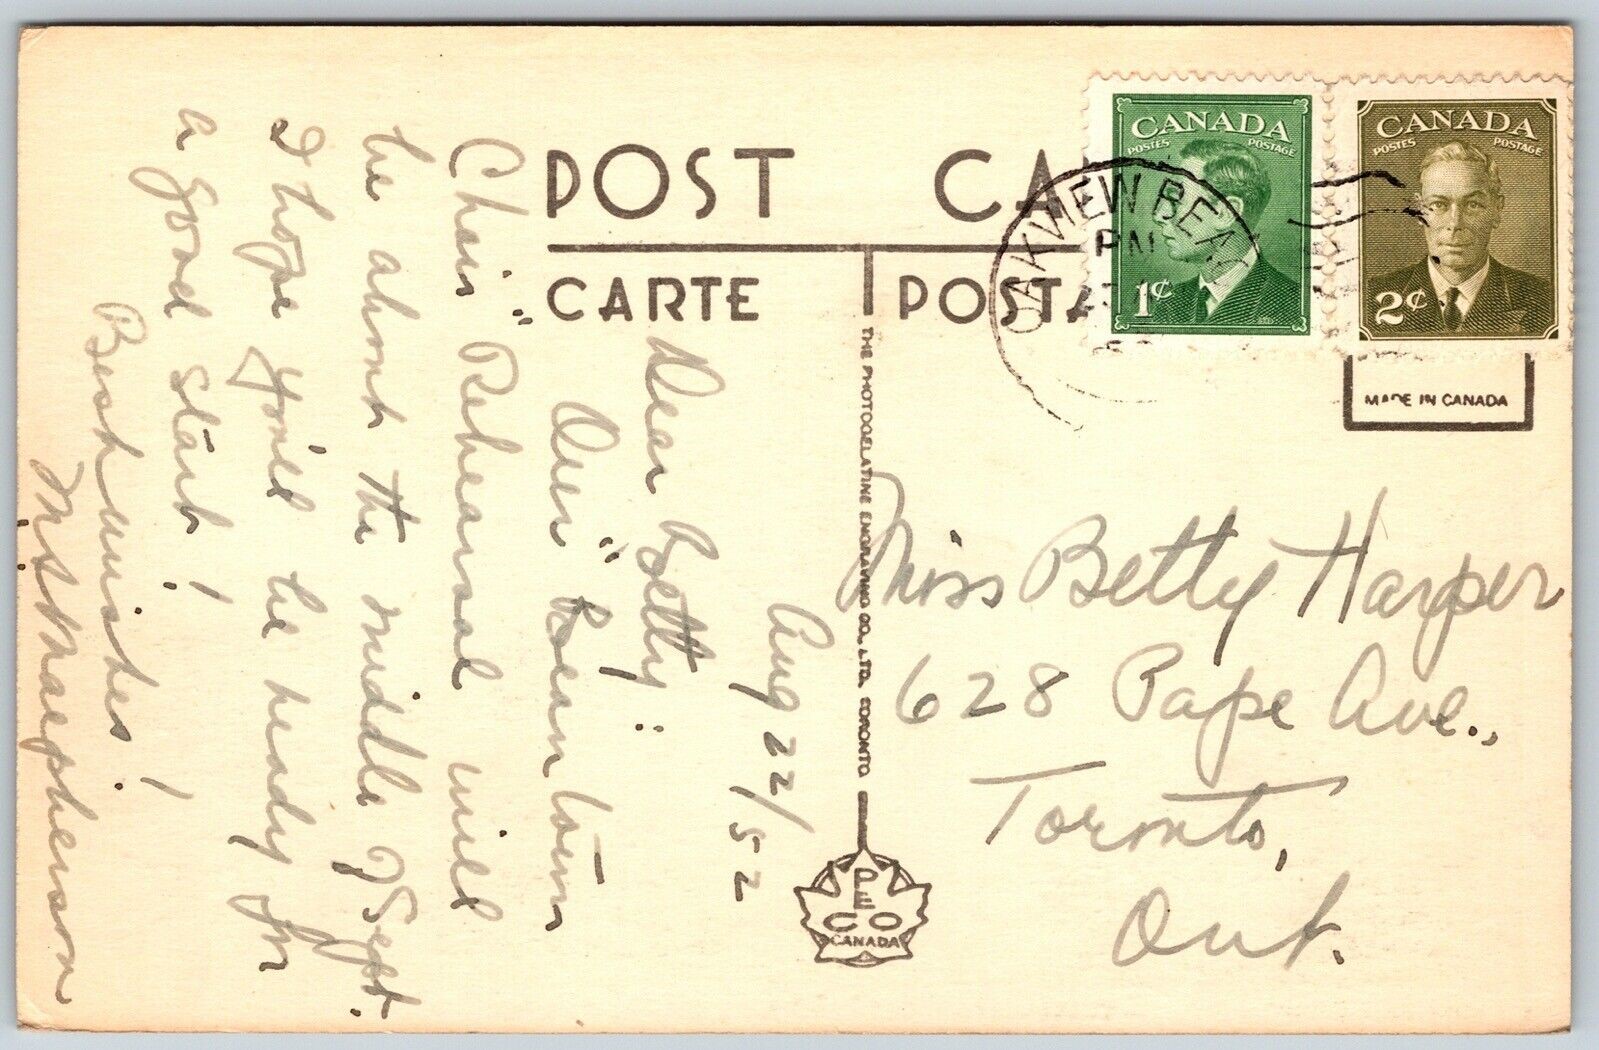 POST CA
CARTE POSTA
CANADA
POSTES POSTAGE
1¢
CANADA
POSTES POSTAGE
2¢
OAKVIEW BEAC
PM
MADE IN CANADA
THE PHOTOGELATINE ENGRAVING CO., LTD. TORONTO
PECO
CANADA
Aug 22/52
Dear Betty:
Our "Beam town
Choir" Rehearsal will
be about the middle of Sept.
I hope you'll be ready for
a good start!
Best wishes!
M. Macpherson
Miss Betty Harper
628 Pape Ave.,
Toronto,
Ont.